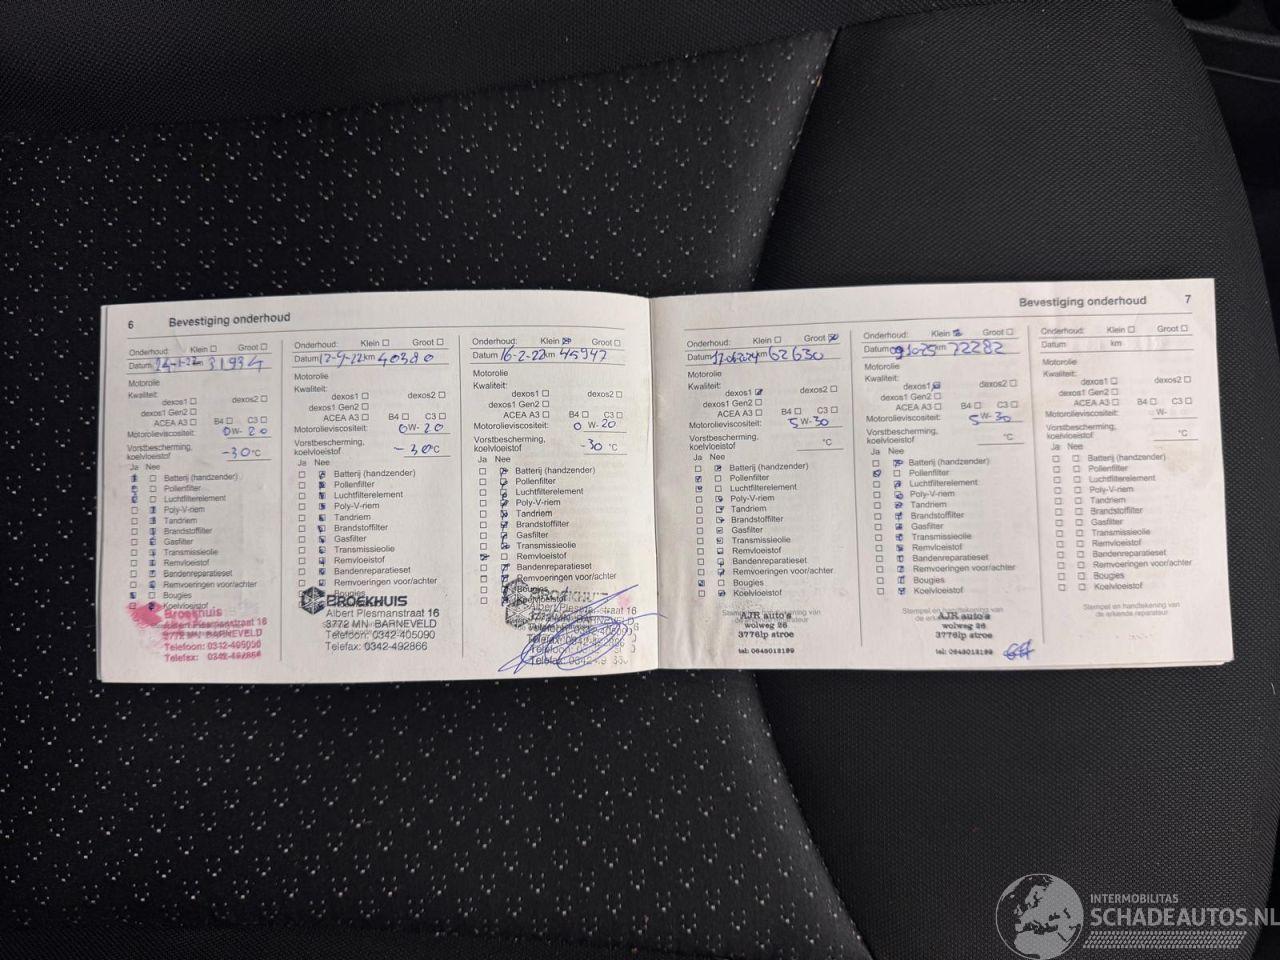 6 Bevestiging onderhoud
Onderhoud: Klein Groot
Datum km 31934
Motorolie
Kwaliteit:
dexos1 dexos2
dexos1 Gen2
ACEA A3 B4 C3
Motorolieviscositeit: 0W-20
Vorstbescherming,
koelvloeistof -30 °C
Ja Nee
Batterij (handzender)
Pollenfilter
Luchtfilterelement
Poly-V-riem
Tandriem
Brandstoffilter
Gasfilter
Transmissieolie
Remvloeistof
Bandenreparatieset
Remvoeringen voor/achter
Bougies
Koelvloeistof
Broekhuis
Albert Plesmanstraat 16
3772 MN BARNEVELD
Telefoon: 0342-405090
Telefax: 0342-492866
Onderhoud: Klein Groot
Datum 12-9-22 km 40380
Motorolie
Kwaliteit:
dexos1 dexos2
dexos1 Gen2
ACEA A3 B4 C3
Motorolieviscositeit: 0W-20
Vorstbescherming,
koelvloeistof -30 °C
Ja Nee
Batterij (handzender)
Pollenfilter
Luchtfilterelement
Poly-V-riem
Tandriem
Brandstoffilter
Gasfilter
Transmissieolie
Remvloeistof
Bandenreparatieset
Remvoeringen voor/achter
Bougies
BROEKHUIS
Albert Plesmanstraat 16
3772 MN BARNEVELD
Telefoon: 0342-405090
Telefax: 0342-492866
Onderhoud: Klein Groot
Datum 16-2-22 km 45947
Motorolie
Kwaliteit:
dexos1 dexos2
dexos1 Gen2
ACEA A3 B4 C3
Motorolieviscositeit: 0W-20
Vorstbescherming,
koelvloeistof -30 °C
Ja Nee
Batterij (handzender)
Pollenfilter
Luchtfilterelement
Poly-V-riem
Tandriem
Brandstoffilter
Gasfilter
Transmissieolie
Remvloeistof
Bandenreparatieset
Remvoeringen voor/achter
Bougies
Koelvloeistof
Bevestiging onderhoud 7
Onderhoud: Klein Groot
Datum km 62630
Motorolie
Kwaliteit:
dexos1 dexos2
dexos1 Gen2
ACEA A3 B4 C3
Motorolieviscositeit: 5W-30
Vorstbescherming,
koelvloeistof °C
Ja Nee
Batterij (handzender)
Pollenfilter
Luchtfilterelement
Poly-V-riem
Tandriem
Brandstoffilter
Gasfilter
Transmissieolie
Remvloeistof
Bandenreparatieset
Remvoeringen voor/achter
Bougies
Koelvloeistof
AJR auto's
wolweg 26
3776lp stroe
tel: 0648018199
Onderhoud: Klein Groot
Datum km 72282
Motorolie
Kwaliteit:
dexos1 dexos2
dexos1 Gen2
ACEA A3 B4 C3
Motorolieviscositeit: 5W-30
Vorstbescherming,
koelvloeistof °C
Ja Nee
Batterij (handzender)
Pollenfilter
Luchtfilterelement
Poly-V-riem
Tandriem
Brandstoffilter
Gasfilter
Transmissieolie
Remvloeistof
Bandenreparatieset
Remvoeringen voor/achter
Bougies
Koelvloeistof
AJR auto's
wolweg 26
3776lp stroe
tel: 0648018199
Onderhoud: Klein Groot
Datum km
Motorolie
Kwaliteit:
dexos1 dexos2
dexos1 Gen2
ACEA A3 B4 C3
Motorolieviscositeit: W-
Vorstbescherming,
koelvloeistof °C
Ja Nee
Batterij (handzender)
Pollenfilter
Luchtfilterelement
Poly-V-riem
Tandriem
Brandstoffilter
Gasfilter
Transmissieolie
Remvloeistof
Bandenreparatieset
Remvoeringen voor/achter
Bougies
Koelvloeistof
Stempel en handtekening van
de erkende reparateur
INTERMOBILITAS
SCHADEAUTOS.NL